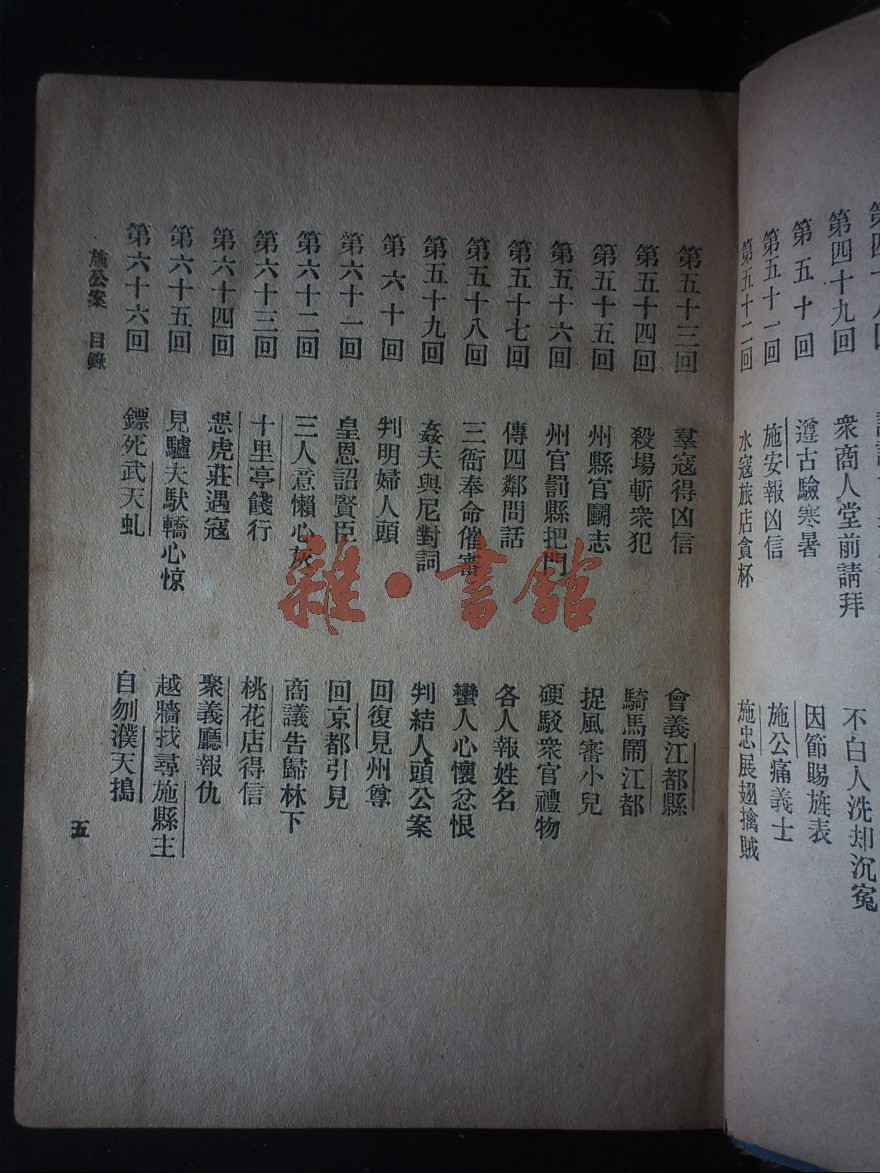 第四十九回 衆商人堂前請拜 不白人洗却沉寃
第五十回 遵古驗寒暑 因節賜旌表
第五十一回 施安報凶信 施公痛義士
第五十二回 水寇旅店貪杯 施忠展翅擒賊
第五十三回 羣寇得凶信 會義江都縣
第五十四回 殺場斬衆犯 騎馬鬧江都
第五十五回 州縣官鬭志 捉風審小兒
第五十六回 州官罰縣把門 硬駁衆官禮物
第五十七回 傳四鄰問話 各人報姓名
第五十八回 三衙奉命催審 蠻人心懷忿恨
第五十九回 姦夫與尼對詞 判結人頭公案
第六十回 判明婦人頭 回復見州尊
第六十一回 皇恩詔賢臣 回京都引見
第六十二回 三人意懶心灰 商議告歸林下
第六十三回 十里亭餞行 桃花店得信
第六十四回 惡虎莊遇寇 聚義廳報仇
第六十五回 見驢夫馱轎心惊 越牆找尋施縣主
第六十六回 鏢死武天虬 自刎濮天搗
施公案 目錄
五
雜·書館